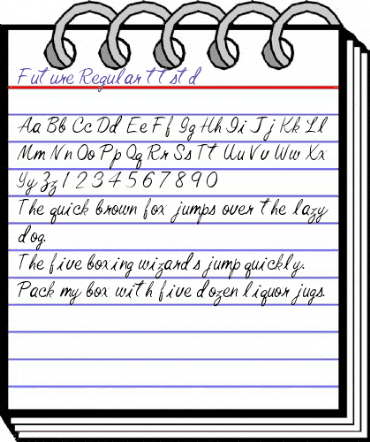 Future Regular ttstd
Aa Bb Cc Dd Ee Ff Gg Hh Ii Jj Kk Ll
Mm Nn Oo Pp Qq Rr Ss Tt Uu Vv Ww Xx
Yy Zz 1 2 3 4 5 6 7 8 9 0
The quick brown fox jumps over the lazy
dog.
The five boxing wizards jump quickly.
Pack my box with five dozen liquor jugs.